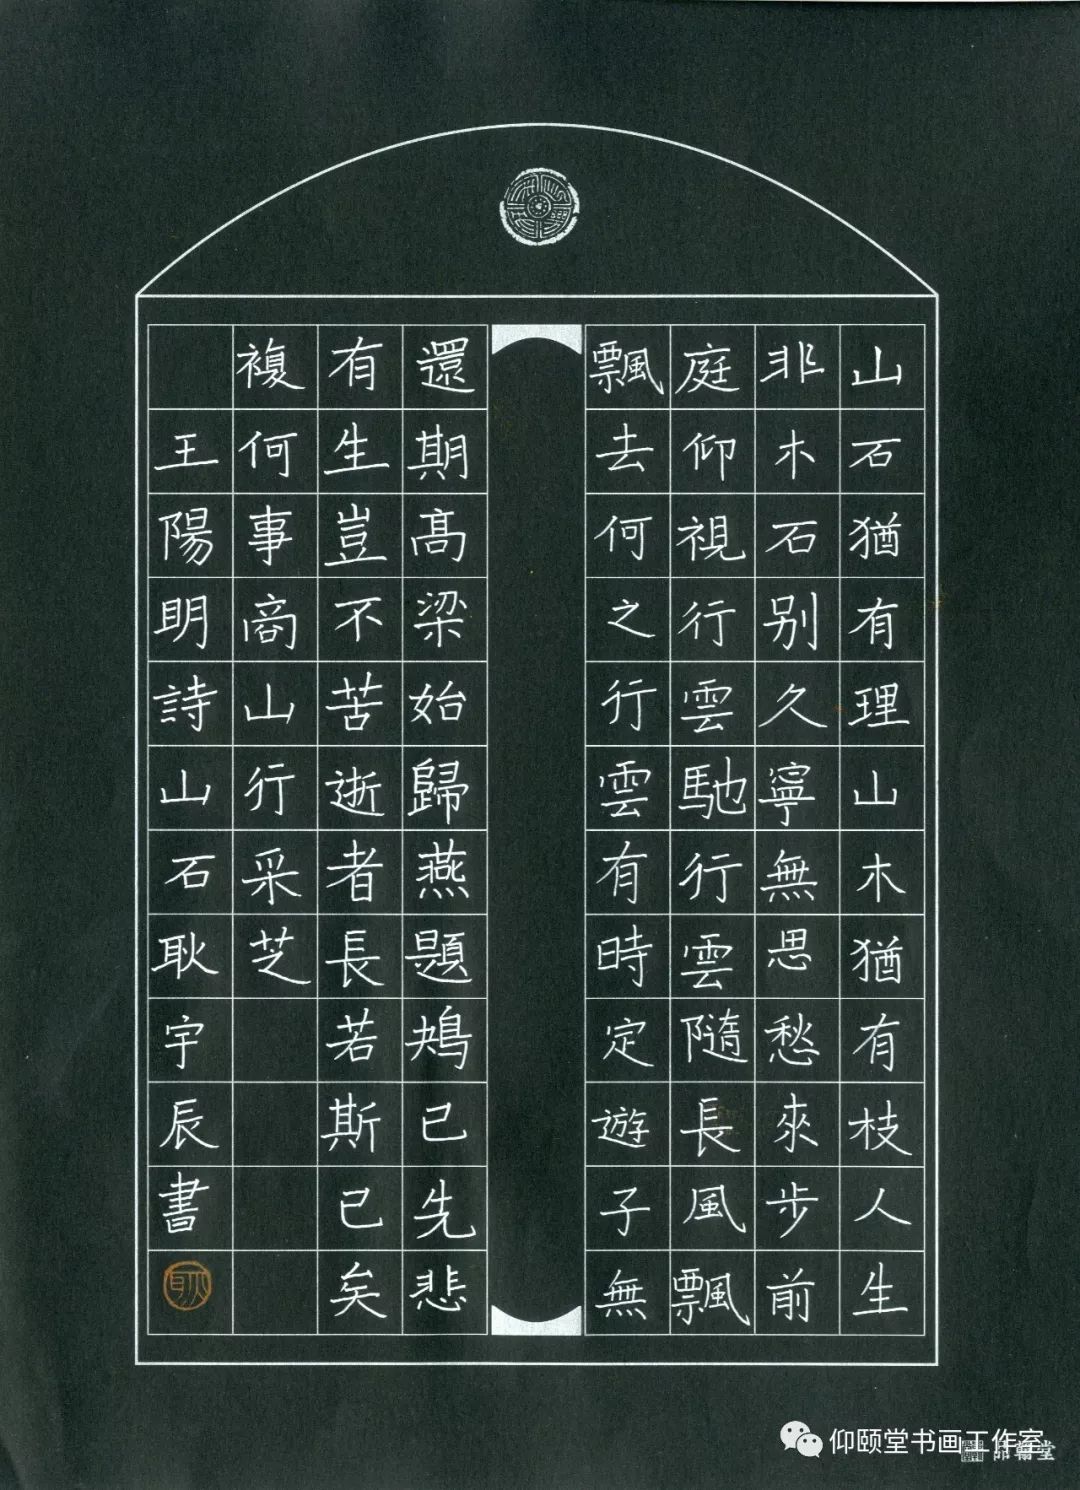 山石猶有理山木猶有枝人生
非木石别久寧無思愁來步前
庭仰視行雲馳行雲隨長風飄
飄去何之行雲有時定遊子無
還期高梁始歸燕題鴂已先悲
有生豈不苦逝者長若斯已矣
複何事商山行采芝
王陽明詩山石耿宇辰書
仰颐堂书画工作室